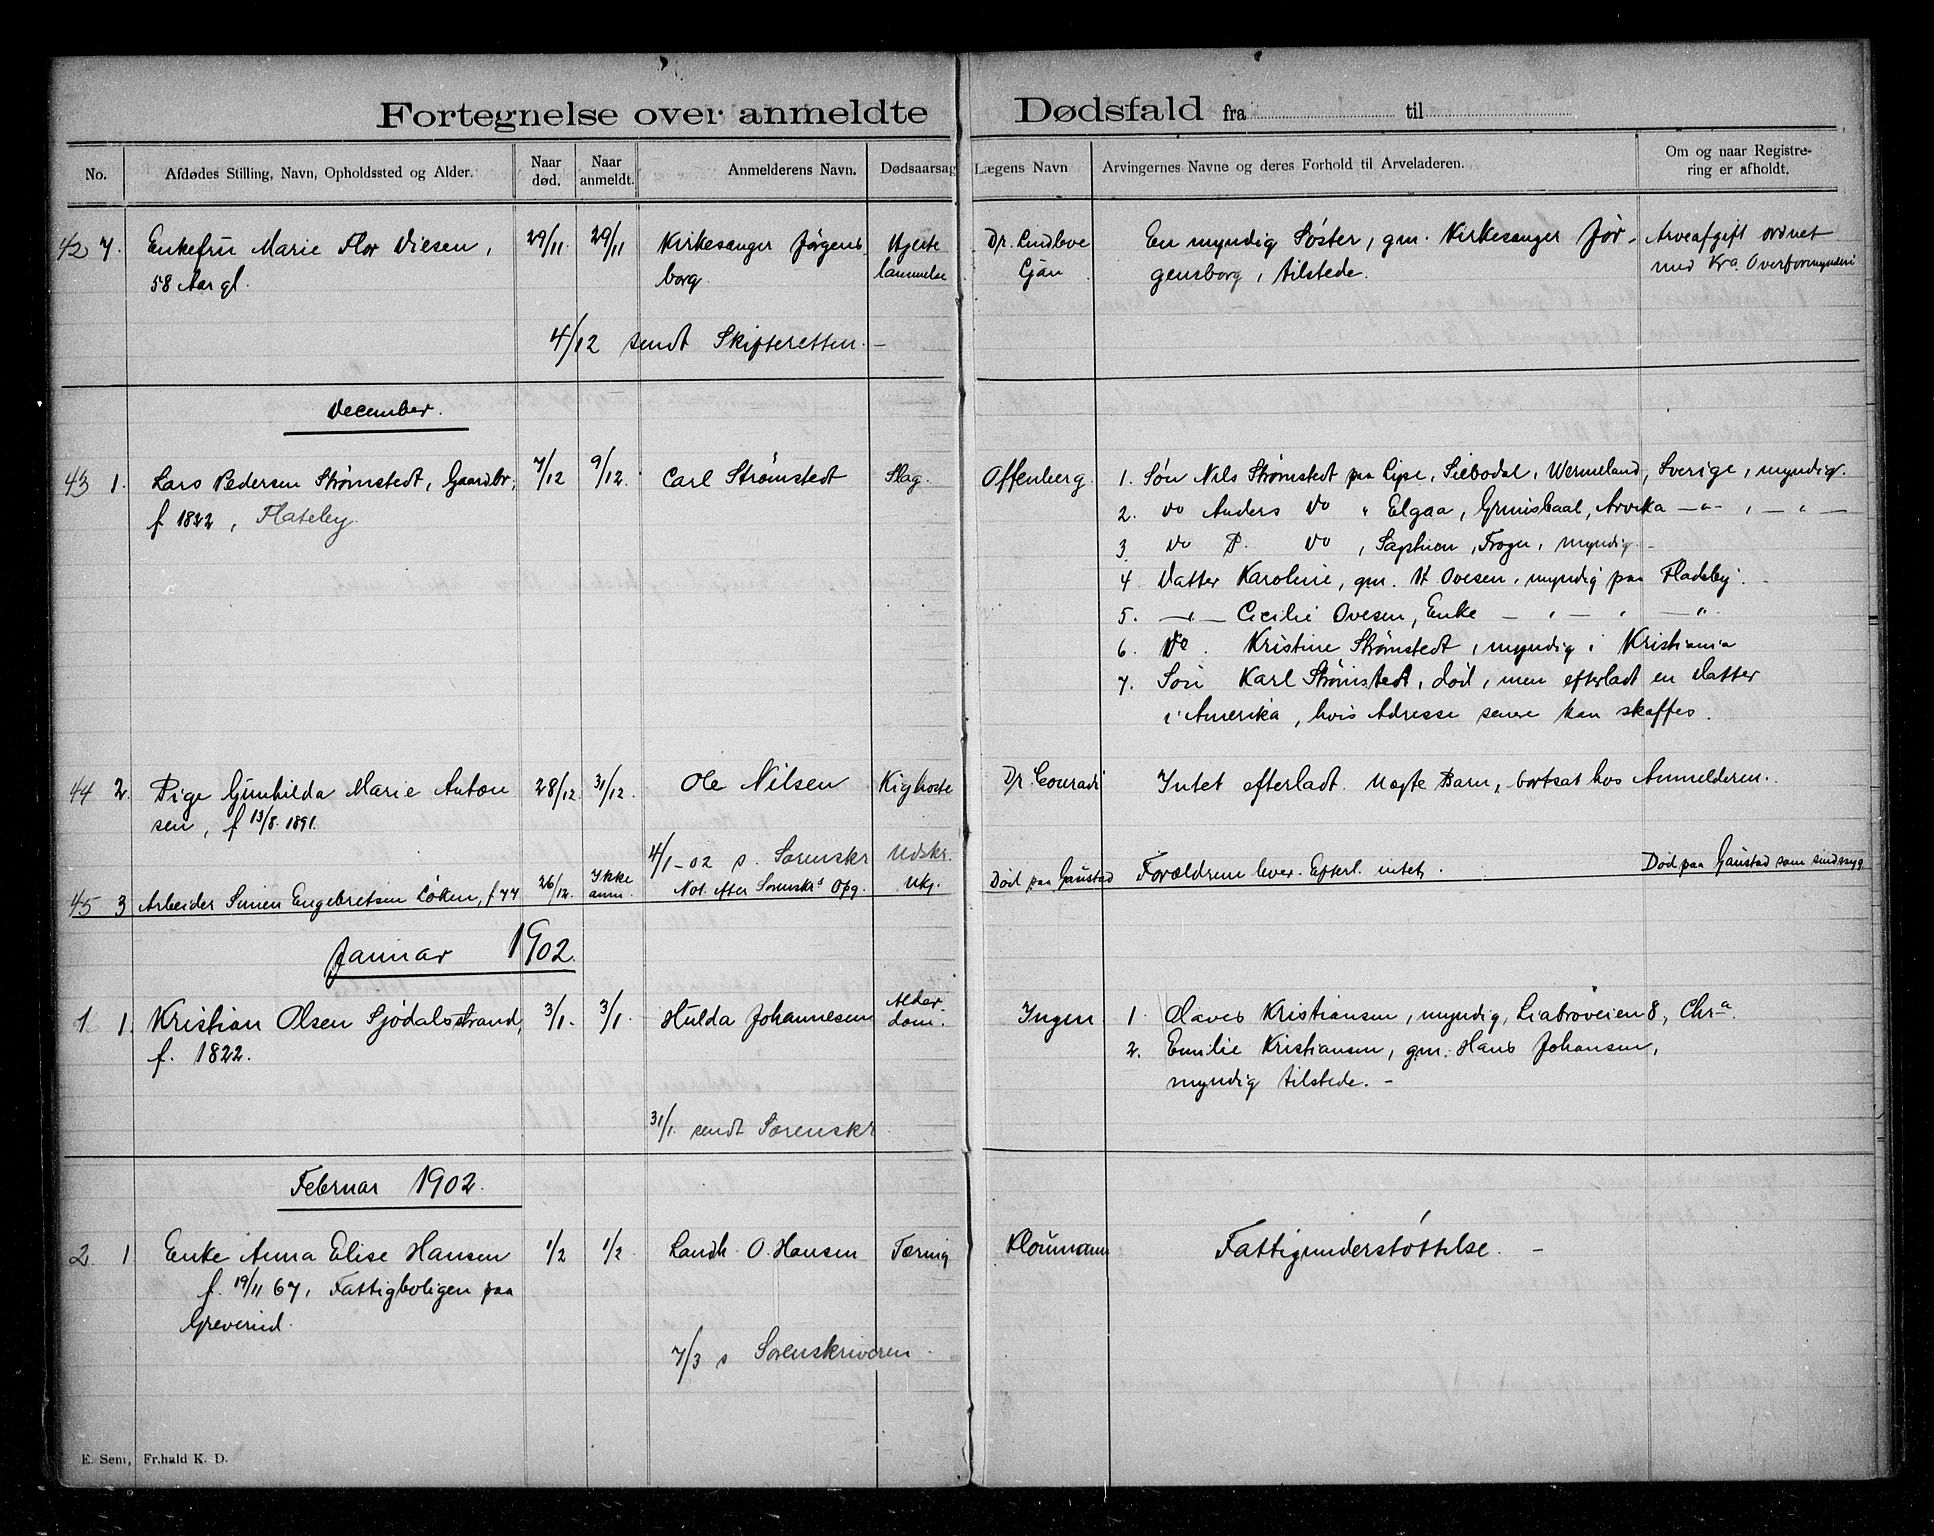 Fortegnelse over anmeldte Dødsfald fra til
No. Afdødes Stilling, Navn, Opholdssted og Alder. Naar død. Naar anmeldt. Anmelderens Navn. Dødsaarsag Lægens Navn Arvingernes Navne og deres Forhold til Arveladeren. Om og naar Registrering er afholdt.
42 7. Enkefru Marie Flor Diesen, 29/11. 29/11 Kirkesanger Jørgens Hjerte Dr. Lindboe En myndig Søster, gm. Kirkesanger Jør- Arveafgift ordnet
58 Aar gl. borg. lammelse gensborg, tilstede. med Kra. Overformynderi
4/12 sendt Skifteretten. —
December.
43 1. Lars Pedersen Strømstedt, Gaardbr., 7/12 9/12. Carl Strømstedt Slag. Offenberg. 1. Søn Nils Strømstedt paa Lipe, Wermeland, Sverige, myndig.
f 1822, Flateby. 2. do Anders do " Elgaa, Arvika — " — , — " —
3 do P. do , Froger, myndig. —
4. Datter Karoline, gm. H Ovesen, myndig paa Fladeby. —
5. —"— Cicilie Ovesen, Enke — " — " — "
6. do. Kristine Strømstedt, myndig i Kristiania
7. Søn Karl Strømstedt, død, men efterladt en Datter
i Amerika, hvis Adresse senere kan skaffes.
44 2. Pige Gunhilda Marie Anton 28/12. 31/12. Ole Nilsen Kighoste Dr. Conradi Intet efterladt. Uægte Barn, bortsat hos Anmelderen.
sen, f 13/8. 1891.
4/1-02 s. Sorenskr Udskr.
45 3 Arbeider Simen Engebretsen Løken, f 44 26/12. Ikke anm. Not. efter Sorenskrs Opg. Ukj. Død paa Gaustad Forældrene lever. Efterl. intet. Død paa Gaustad som sindssyg
Januar 1902.
1 1. Kristian Olsen Sjødalsstrand, 3/1. 3/1 Hulda Johannesen Alderdom. Ingen 1. Olaves Kristiansen, myndig, Liabroveien 8, Chr.a.
f. 1822. 2. Emilie Kristiansen, gm. Hans Johansen,
myndig tilstede. —
31/1. sendt Sorenskr.
Februar 1902.
2 1 Enke Anna Elise Hansen 1/2 1/2 Landh. O. Hansen Tæring Kloumann Fattigunderstøttelse. —
f. 19/11 67, Fattigboligen paa
Greverud.
7/3 s Sorenskriveren.
E. Sem, Fr.hald K. D.